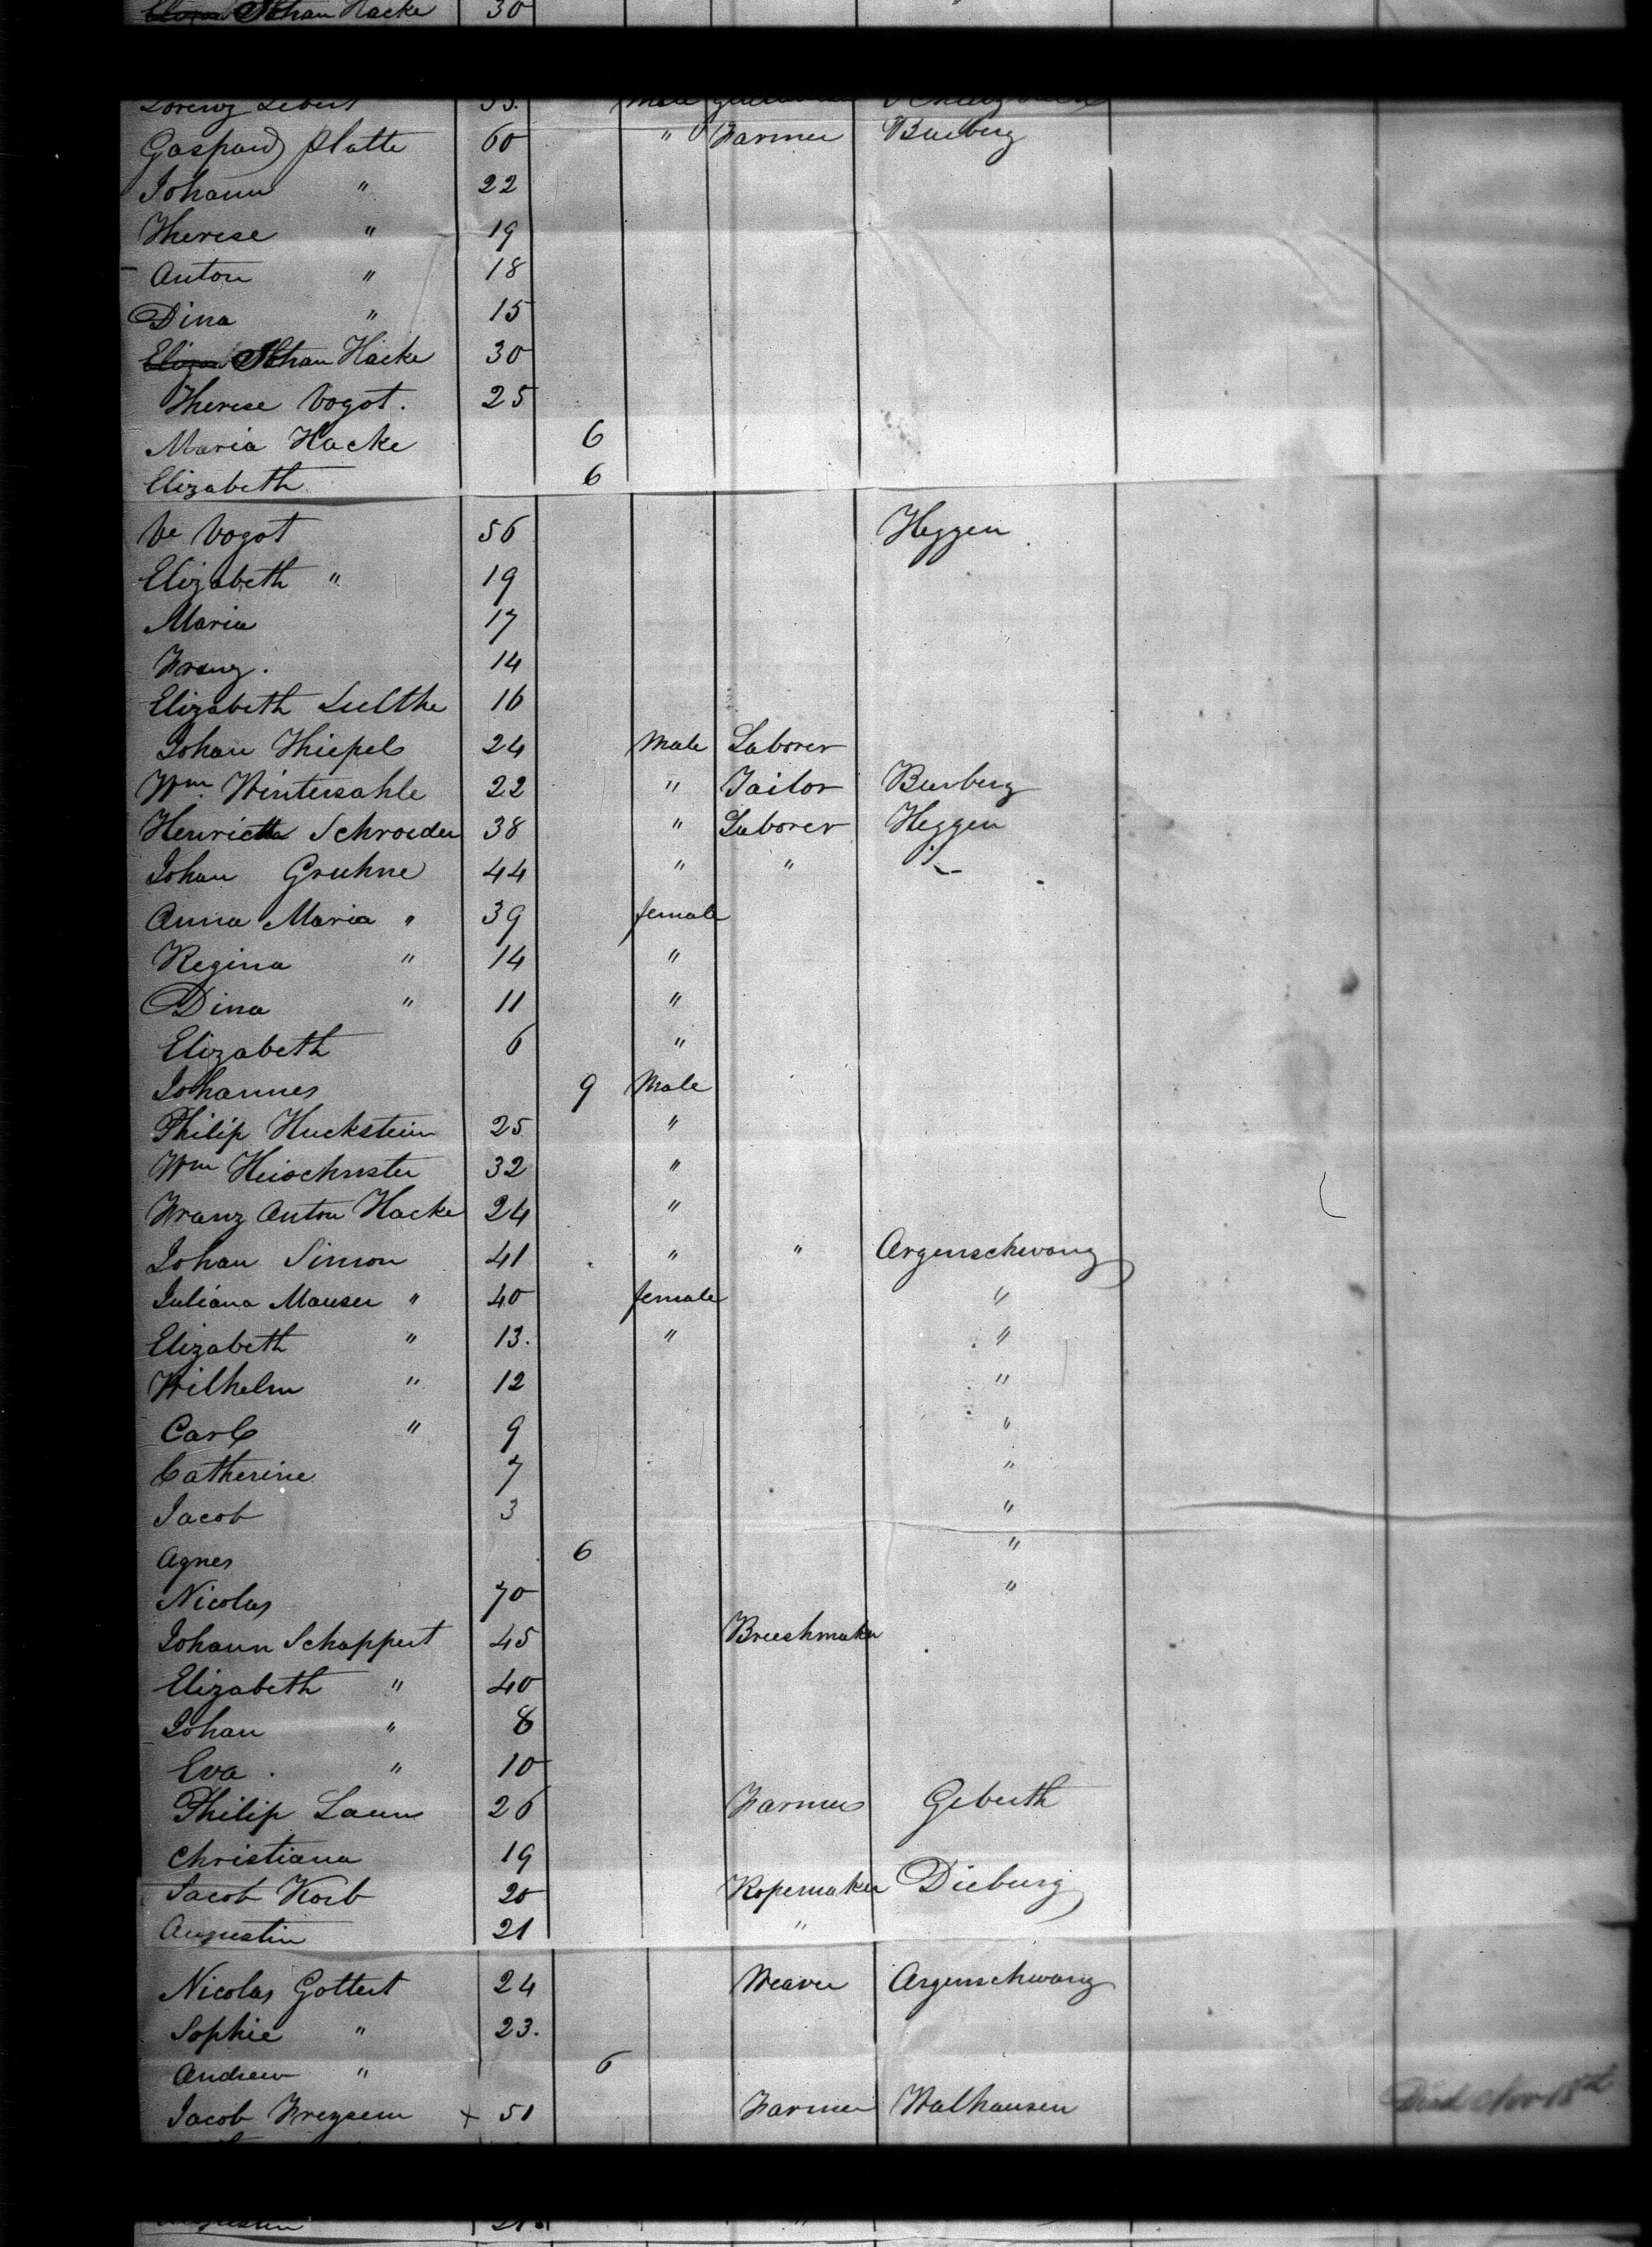 Johan Hacke 30
Lorenz Lebert 33. male
Gaspard Platte 60 " Farmer Burberg
Johann " 22
Therese " 19
Anton " 18
Dina " 15
Johan Hacke 30
Therese Vogot. 25
Maria Hacke 6
Elizabeth 6
Ve Vogot 56 Heggen
Elizabeth " 19
Maria 17
Franz. 14
Elizabeth Lulthe 16
Johan Thiepel 24 Male Laborer
Wm. Wintersahle 22 " Tailor Burberg
Henrietta Schroeder 38 " Laborer Heggen
Johan Gruhne 44 " " "
Anna Maria " 39 female
Regina " 14 "
Dina " 11 "
Elizabeth 6 "
Johannes 9 Male
Philip Huckstein 25 "
Wm 32 "
Franz Anton Hacke 24 "
Johan Simon 41 " " Argenschwang
Juliana Mauser " 40 female "
Elizabeth " 13. " "
Wilhelm " 12 "
Carl " 9 "
Catherine 7 "
Jacob 3 "
Agnes 6 "
Nicolas 70 "
Johann Schappert 45 Brushmaker
Elizabeth " 40
Johan " 8
Eva. " 10
Philip Laun 26 Farmer Geberth
Christiana 19
Jacob Korb 20 Ropemaker Dieburg
Augustin 21 "
Nicolas Gottert 24 Weaver Argenschwang
Sophie " 23.
Andrew " 6
Jacob Freysem + 51 Farmer Walhausen Died Nov 18th
Augustin 21. "